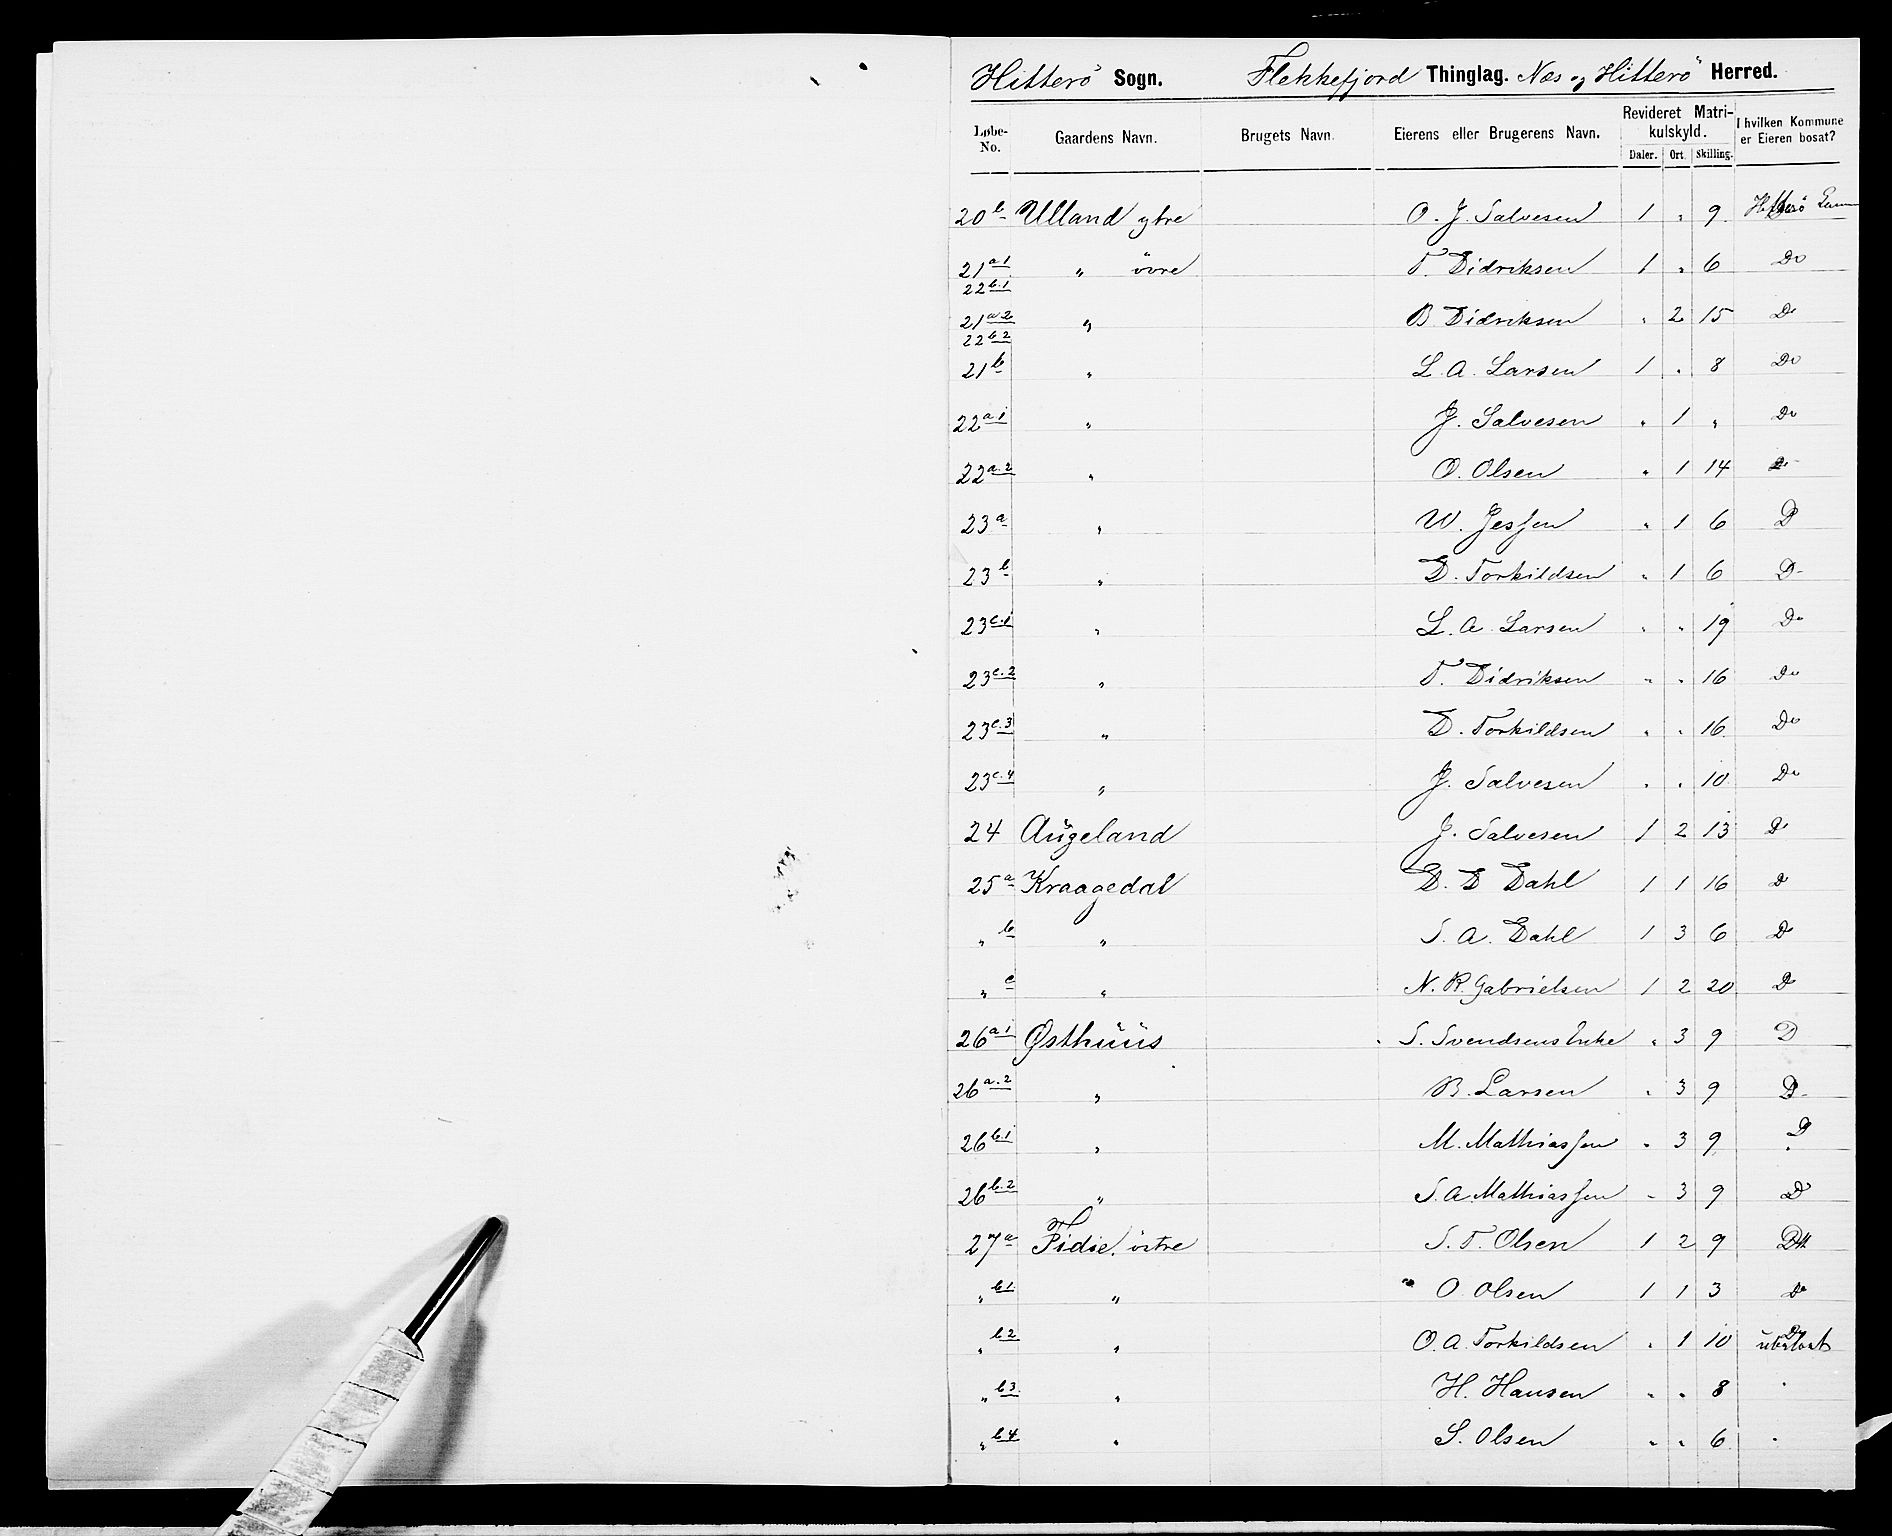 Hitterö Sogn. Flekkefjord Thinglag. Næs og Hitterö Herred.
Løbe-No. Gaardens Navn. Brugets Navn. Eierens eller Brugerens Navn. Revideret Matrikulskyld. Daler. Ort. Skilling. I hvilken Kommune er Eieren bosat?
20 b Ulland ytre O. J. Salvesen 1 " 9 Hitterö
21 a1 22 b.1 " övre T. Didriksen 1 " 6 Do
21 a2 22 b2 " B Didriksen " 2 15 Do
21 b " L. A. Larsen 1 " 8 Do
22 a1 " J. Salvesen " 1 " Do
22 a.2 " O. Olsen " 1 14 Do
23 a " W. Jessen " 1 6 D
23 b " D. Torkildsen " 1 6 D
23 c.1 " L. A. Larsen " " 19 Do
23 c.2 " T. Didriksen " " 16 Do
23 c.3 " D. Torkildsen " " 16 Do
23 c.4 " J. Salvesen " " 10 Do
24 Augeland J. Salvesen 1 2 13 Do
25 a Kraagedal D. D Dahl 1 1 16 D
" b " S. A. Dahl 1 3 6 Do
" c " N. R. Gabrielsen 1 2 20 Do
26 a1 Østhuus S. Svendsens Enke " 3 9 D
26 a.2 " B. Larsen " 3 9 D
26 b.1 " M. Mathiassen " 3 9 D
26 b.2 " S. A. Mathiassen " 3 9 D
27 a Fidie. östre S. T. Olsen 1 2 9
" b1. " O Olsen 1 1 3 Do
" b2 " O. A. Torkildsen " 1 10 Do
" b3 " H. Hansen " " 8 "
" b4 " S. Olsen " " 6 "